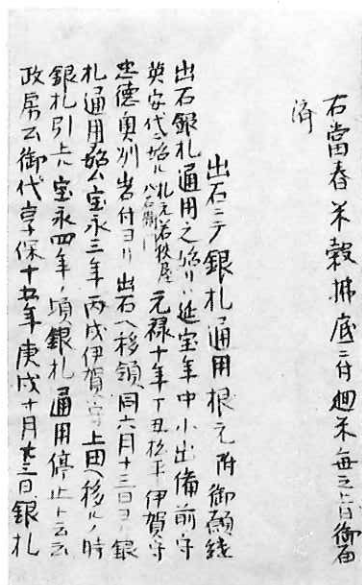 右當春米穀拂底ニ付廻米毎之
済
出石ニテ銀札通用根元附御願銭
出石銀札通用之始リハ延宝年中小出備前守
英安代ニ始ル札元若狭屋八右衛門元禄十年丁丑松平伊賀守
忠徳奥州岩付ヨリ出石ヘ移領同六月十三日ヨリ銀
札通用始ム宝永三年丙戌伊賀守上田ヘ移ルノ時
銀札引上ル宝永四年ノ頃銀札通用停止ト云云
政房公御代享保十五年庚戌十月廿三日銀札